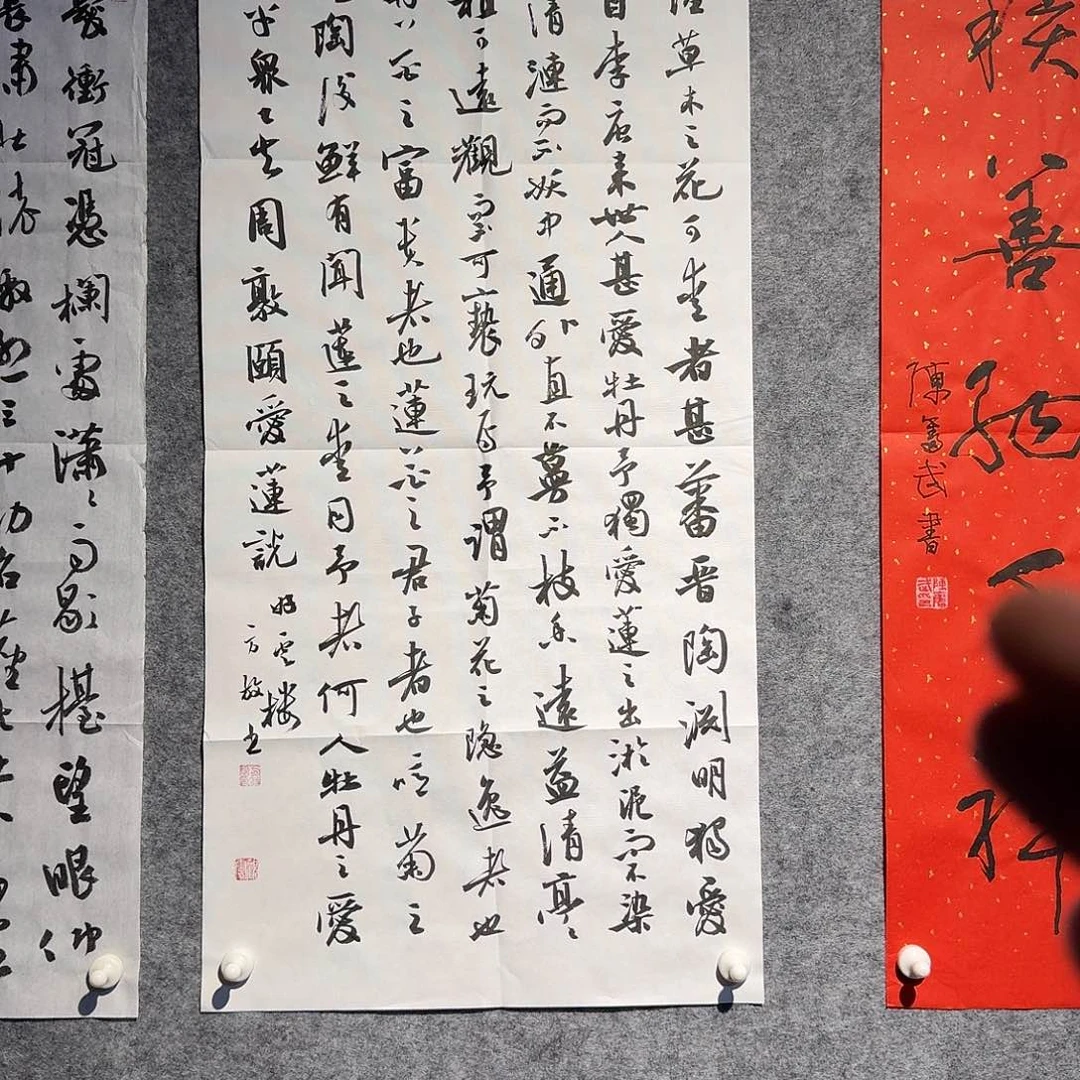 善
陳奮武書
草木之花可愛者甚蕃晋陶渊明獨愛
自李唐来世人甚愛牡丹予獨愛蓮之出淤泥而不染
清漣而不妖中通外直不蔓不枝香遠益清亭々
植可遠觀而不可褻玩焉予謂菊花之隐逸者也
花之富貴者也蓮花之君子者也噫菊之
陶後鮮有聞蓮之愛同予者何人牡丹之愛
乎眾々矣周敦頤愛蓮説
樓
方放书
髮衝冠憑欄處瀟々雨歇檯望眼仰
嘯壯懷激烈三十功名塵與土八